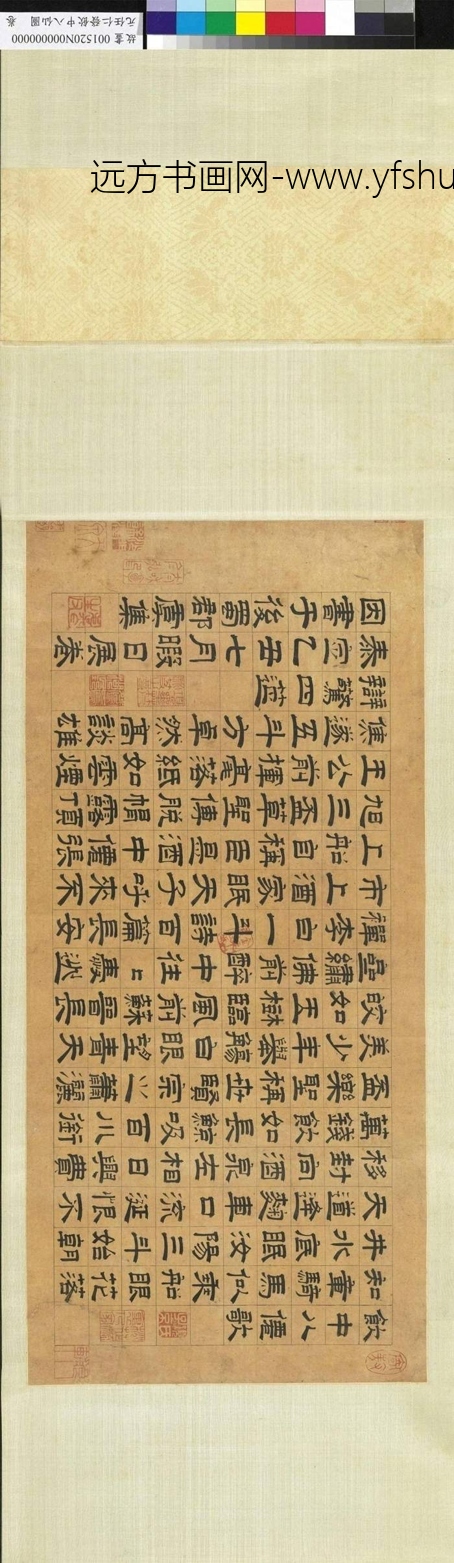 故畫 001520N000000000
元任仁發飲中八仙圖 卷
远方书画网-www.yfshu
飲中八僊歌
知章騎馬似乘船眼花落
井水底眠汝陽三斗始朝
天道逢麴車口流涎恨不
移封向酒泉左相日興費
萬錢飲如長鯨吸百川銜
盃樂聖稱世賢宗之蕭灑
美少年舉觴白眼望青天
皎如玉樹臨風前蘇晉長
齋繡佛前醉中往〻愛逃
禪李白一斗詩百篇長安
市上酒家眠天子呼來不
上船自稱臣是酒中僊張
旭三盃草聖傳脫帽露頂
王公前揮毫落紙如雲煙
焦遂五斗方卓然高談雄
辯驚四筵
泰定乙丑七月暇日展卷
因書于後蜀郡虞集